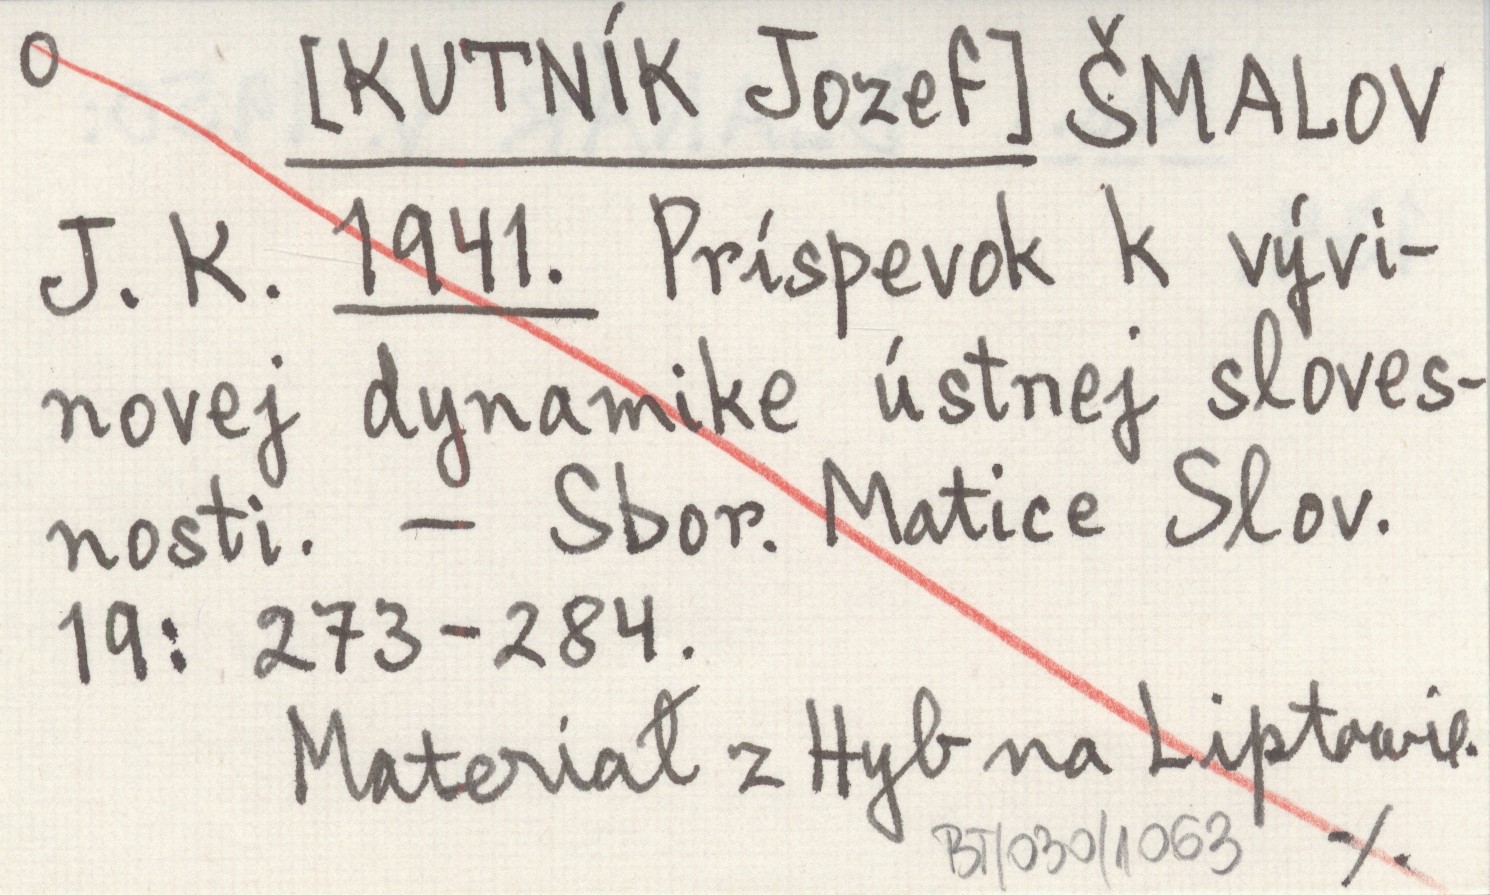 O [KUTNÍK Jozef] ŠMALOV
J. K. 1941. Príspevok k vývi-
novej dynamike ústnej sloves-
nosti. — Sbor. Matice Slov.
19: 273-284.
Materiał z Hyb na Liptowie.
BT/030/1063 -/.